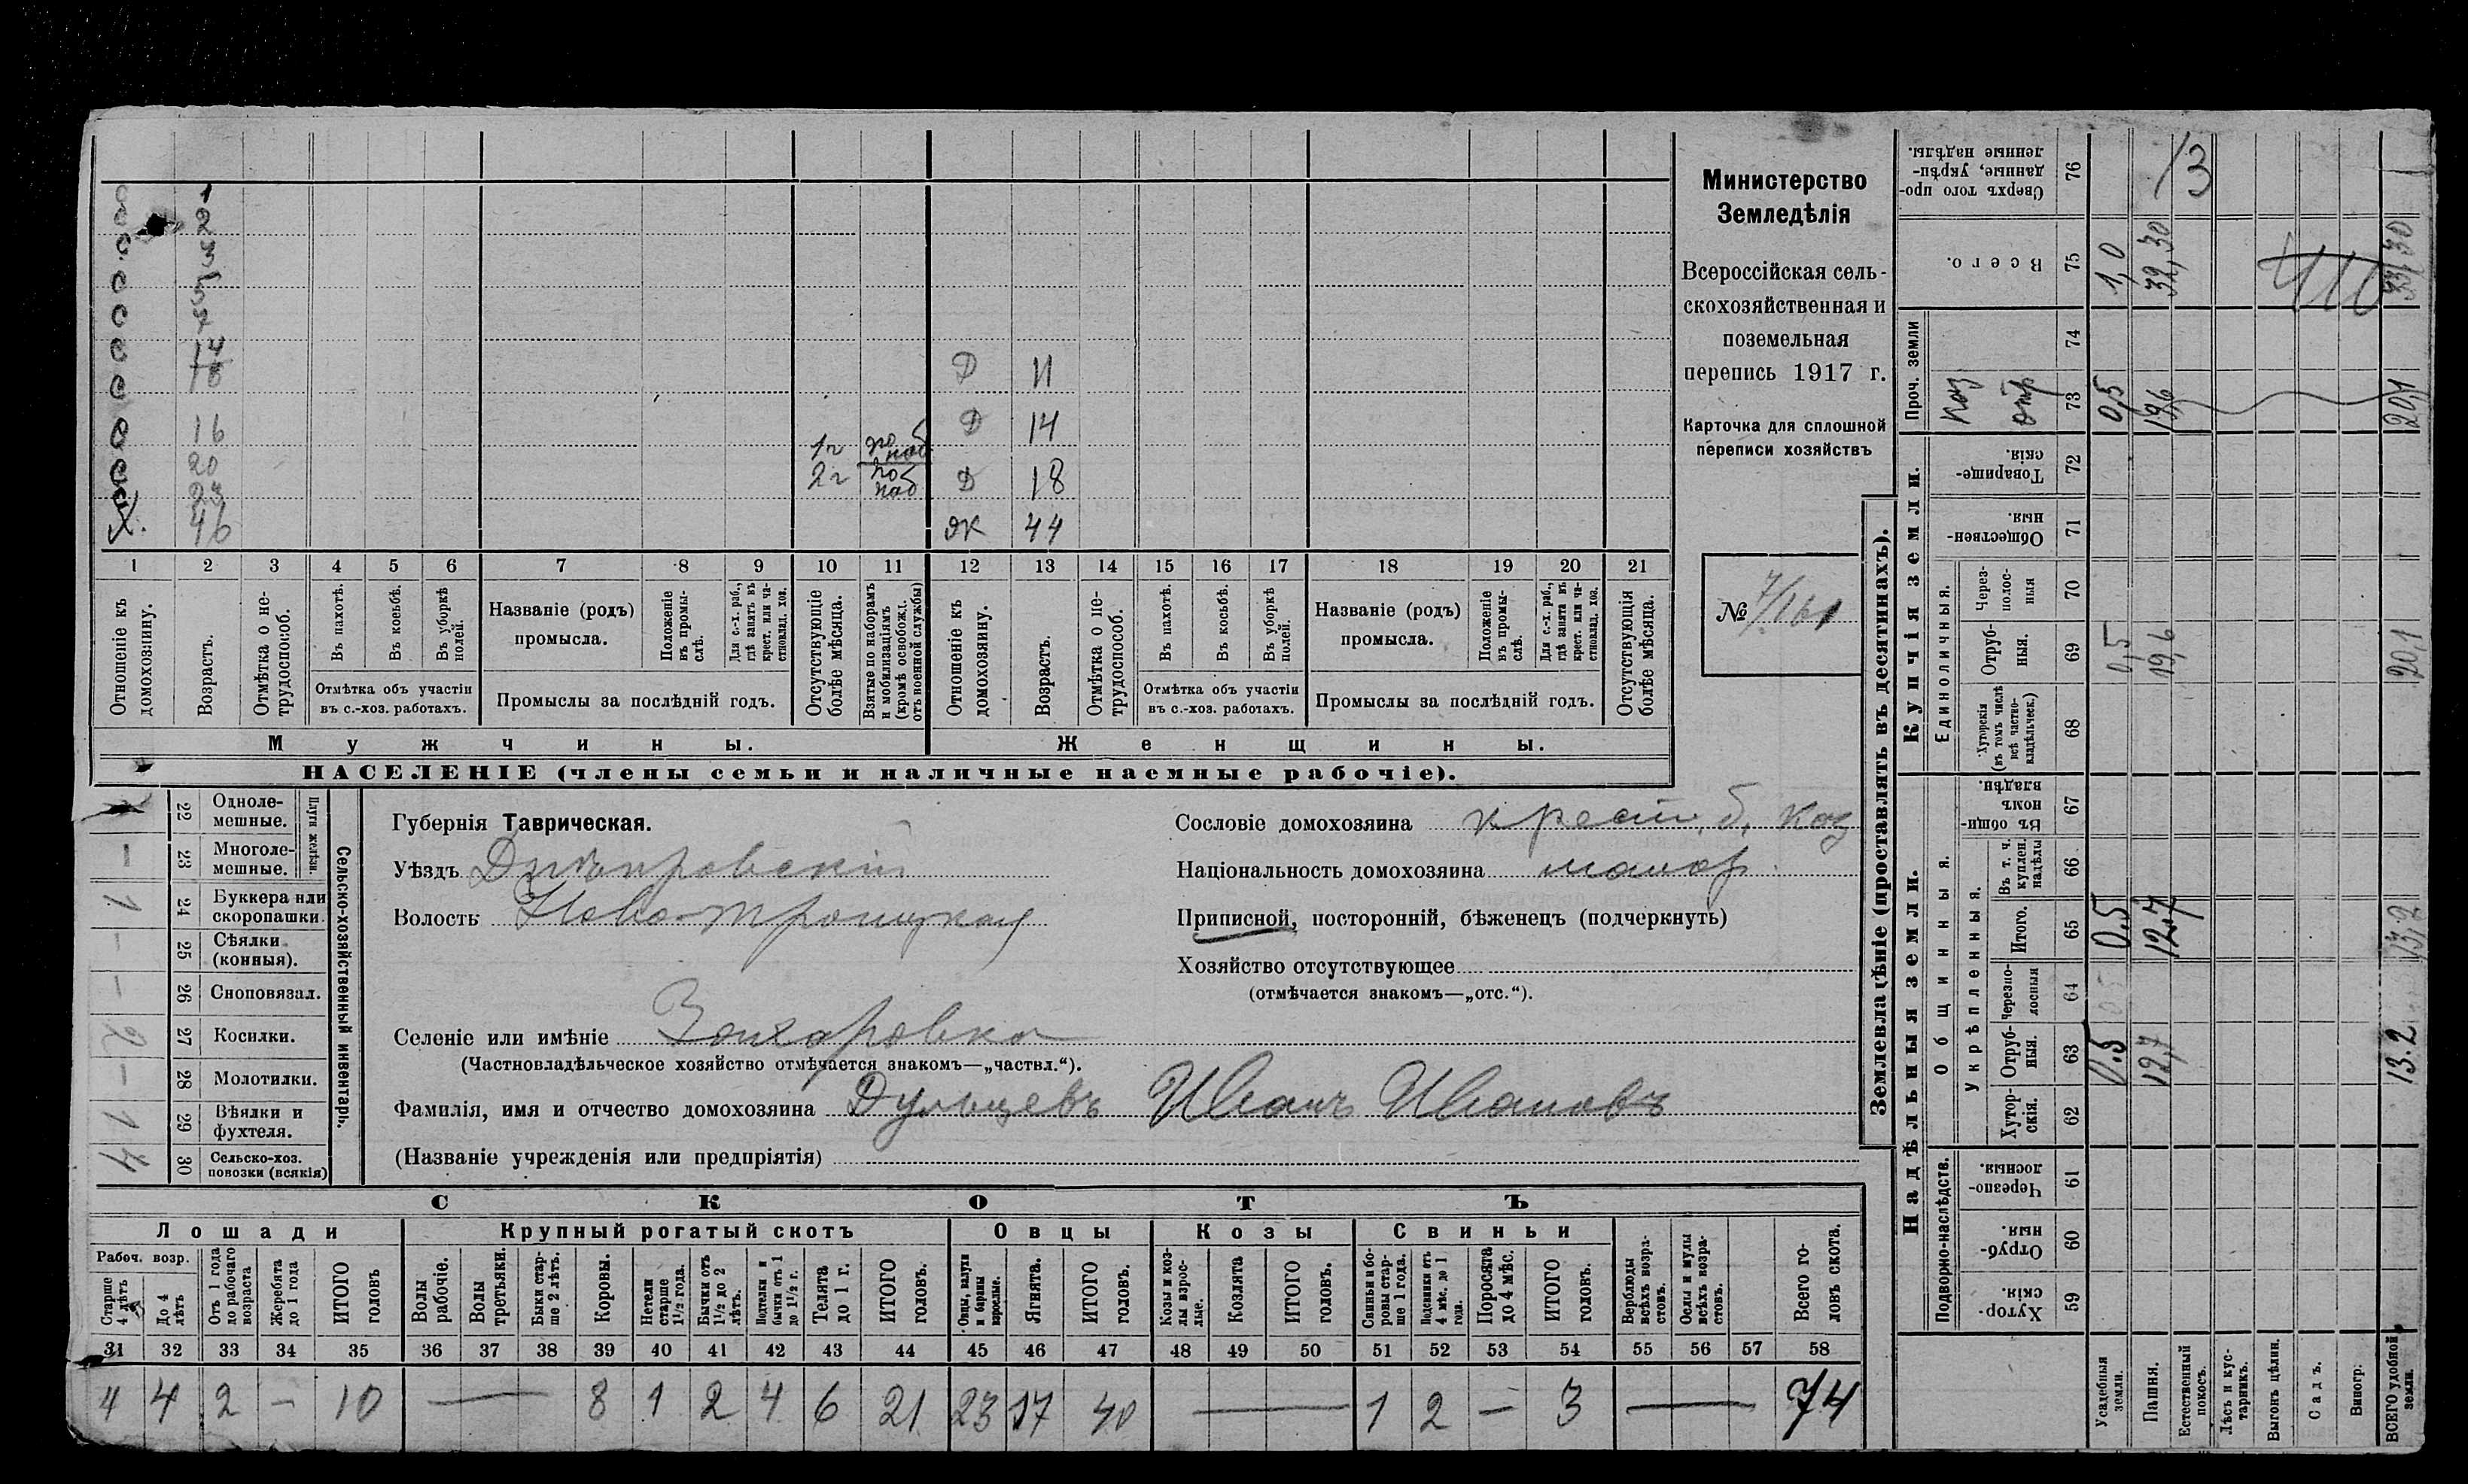 Министерство
Земледѣлія
Всероссійская сель-
скохозяйственная и
поземельная
перепись 1917 г.
Карточка для сплошной
переписи хозяйствъ
№ 7/161
1
2
3
5
14
16
20
23
Х. 46
1 г
2 г
Д 11
Д 14
Д 18
Ж 44
1 2 3 4 5 6 7 8 9 10 11 12 13 14 15 16 17 18 19 20 21
Отношеніе къ домохозяину.
Возрастъ.
Отмѣтка о не-трудоспособ.
Въ пахотѣ.
Въ косьбѣ.
Въ уборкѣ полей.
Отмѣтка объ участіи въ с.-хоз. работахъ.
Названіе (родъ) промысла.
Положеніе въ промы-слѣ.
Для с.-х. раб., гдѣ занятъ въ крест. или ча-стновлад. хоз.
Промыслы за послѣдній годъ.
Отсутствующіе болѣе мѣсяца.
Взятые по наборамъ и мобилизаціямъ (кромѣ освобожд. отъ военной службы)
Отношеніе къ домохозяину.
Возрастъ.
Отмѣтка о не-трудоспособ.
Въ пахотѣ.
Въ косьбѣ.
Въ уборкѣ полей.
Отмѣтка объ участіи въ с.-хоз. работахъ.
Названіе (родъ) промысла.
Положеніе въ промы-слѣ.
Для с.-х. раб., гдѣ занята въ крест. или ча-стновлад. хоз.
Промыслы за послѣдній годъ.
Отсутствующія болѣе мѣсяца.
Мужчины. Женщины.
НАСЕЛЕНІЕ (члены семьи и наличные наемные рабочіе).
Сельско-хозяйственный инвентарь.
Плуги желѣзн.
22 Одноле-мешные.
– 23 Многоле-мешные.
1 24 Буккера или скоропашки.
– 25 Сѣялки (конныя).
– 26 Сноповязал.
2 27 Косилки.
– 28 Молотилки.
1 29 Вѣялки и фухтеля.
4 30 Сельско-хоз. повозки (всякія)
Губернія Таврическая.
Уѣздъ Днѣпровскій
Волость Ново-Троицкая
Селеніе или имѣніе
(Частновладѣльческое хозяйство отмѣчается знакомъ—„частвл.“).
Фамилія, имя и отчество домохозяина Иванъ Ивановъ
(Названіе учрежденія или предпріятія)
Сословіе домохозяина крест. б. каз
Національность домохозяина малор.
Приписной, посторонній, бѣженецъ (подчеркнуть)
Хозяйство отсутствующее
(отмѣчается знакомъ—„отс.“).
СКОТЪ
Лошади Крупный рогатый скотъ Овцы Козы Свиньи
Рабоч. возр.
Старше 4 лѣтъ
До 4 лѣтъ
Отъ 1 года до рабочаго возраста
Жеребята до 1 года
ИТОГО головъ
Волы рабочіе.
Волы третьяки.
Быки стар-ше 2 лѣтъ.
Коровы.
Нетели старше 1½ года.
Бычки отъ 1½ до 2 лѣтъ.
Подтелки и бычки отъ 1 до 1½ г.
Телята до 1 г.
ИТОГО головъ.
Овцы, валухи и бараны взрослые.
Ягнята.
ИТОГО головъ.
Козы и коз-лы взрос-лые.
Козлята
ИТОГО головъ.
Свиньи и бо-ровы стар-ше 1 года.
Подсвинки отъ 4 мѣс. до 1 года.
Поросята до 4 мѣс.
ИТОГО головъ.
Верблюды всѣхъ возра-стовъ.
Ослы и мулы всѣхъ возра-стовъ.
Всего го-ловъ скота.
31 32 33 34 35 36 37 38 39 40 41 42 43 44 45 46 47 48 49 50 51 52 53 54 55 56 57 58
4 4 2 – 10 — 8 1 2 4 6 21 23 17 40 — 1 2 – 3 — 74
Землевладѣніе (проставлять въ десятинахъ).
Надѣльныя земли. Купчія земли. Проч. земли
Подворно-наслѣдств.
Общинныя.
Укрѣпленныя.
Единоличныя.
Хутор-скія. 59
Отруб-ныя. 60
Черезпо-лосныя. 61
Хутор-скія. 62
Отруб-ныя. 63
Черезпо-лосныя 64
Итого. 65
Въ т. ч. куплен. надѣлы 66
Въ общин-номъ владѣн. 67
Хуторскія (въ томъ числѣ всѣ частно-владѣльческ.) 68
Отруб-ныя. 69
Через-полос-ныя 70
Обществен-ныя. 71
Товарище-скія. 72
Каз отр 73
74
Всего. 75
Сверхъ того про-данные, укрѣп-ленные надѣлы. 76
Усадебныя земли. 0.5 0,5 0,5 0,5 1,0
Пашня. 12,7 12,7 19,6 19,6 32,30 13
Естественный покосъ.
Лѣсъ и кус-тарникъ.
Выгонъ цѣлин.
Садъ.
Виногр.
ВСЕГО удобной земли. 13.2 13,2 20,1 20,1 33,30